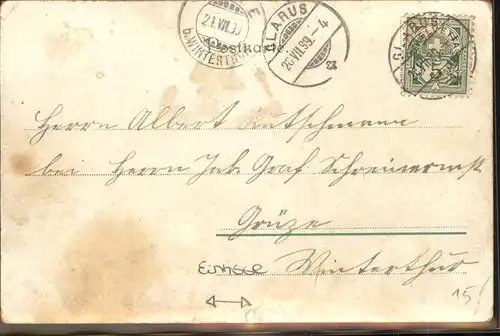 E
21.VII.99
b. WINTERTHUR
GLARUS
26.VII.99.-4
Postkarte.
GLARUS
HELVETIA
5
Herrn Albert Kutschmann
bei Herrn Jak. Graf Schreinermst
Grüze
Winterthur
15